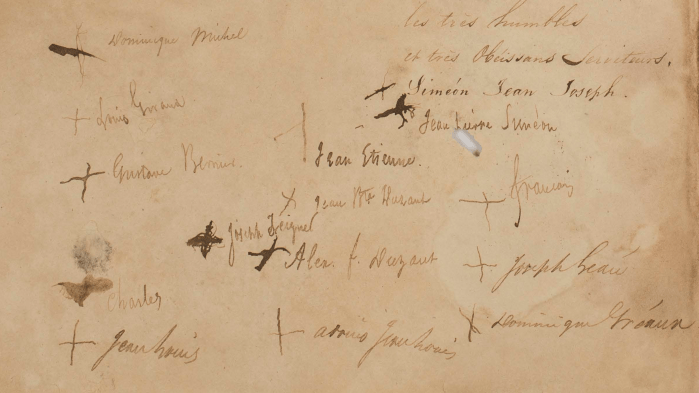 les très humbles
et très Obéissans Serviteurs.
Siméon Jean Joseph.
Dominique Michel
Jean Pierre Siméon
Louis
Jean Etienne.
Gustave
Jean Bte
François
Joseph
Alex. f. Duzant
Joseph
Charles
Dominique Gréaux
Jean Louis
Jean Louis